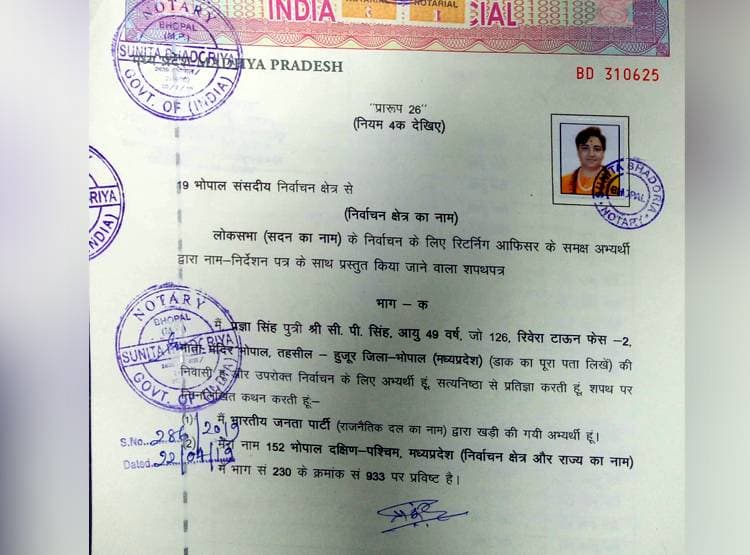 INDIA
NOTARIAL
CIAL
मध्य प्रदेश MADHYA PRADESH
BD 310625
NOTARY
BHOPAL
(M.P.)
SUNITA BHADORIYA
GOVT. OF (INDIA)
"प्रारूप 26"
(नियम 4क देखिए)
SUNITA BHADORIA
BHOPAL
NOTARY
19 भोपाल संसदीय निर्वाचन क्षेत्र से
(निर्वाचन क्षेत्र का नाम)
लोकसभा (सदन का नाम) के निर्वाचन के लिए रिटर्निंग आफिसर के समक्ष अभ्यर्थी
द्वारा नाम–निर्देशन पत्र के साथ प्रस्तुत किया जाने वाला शपथपत्र
भाग – क
NOTARY
BHOPAL
SUNITA BHADORIYA
GOVT. OF (INDIA)
मैं प्रज्ञा सिंह पुत्री श्री सी. पी. सिंह, आयु 49 वर्ष, जो 126, रिवेरा टाऊन फेस –2,
माता मंदिर भोपाल, तहसील – हुजूर जिला–भोपाल (मध्यप्रदेश) (डाक का पूरा पता लिखें) की
निवासी हूं और उपरोक्त निर्वाचन के लिए अभ्यर्थी हूं, सत्यनिष्ठा से प्रतिज्ञा करती हूं, शपथ पर
निम्नलिखित कथन करती हूं:–
(1) मैं भारतीय जनता पार्टी (राजनैतिक दल का नाम) द्वारा खड़ी की गयी अभ्यर्थी हूं।
(2) मेरा नाम 152 भोपाल दक्षिण–पश्चिम, मध्यप्रदेश (निर्वाचन क्षेत्र और राज्य का नाम)
में भाग सं 230 के क्रमांक सं 933 पर प्रविष्ट है।
S.No. 286/2019
Dated 22/04/19